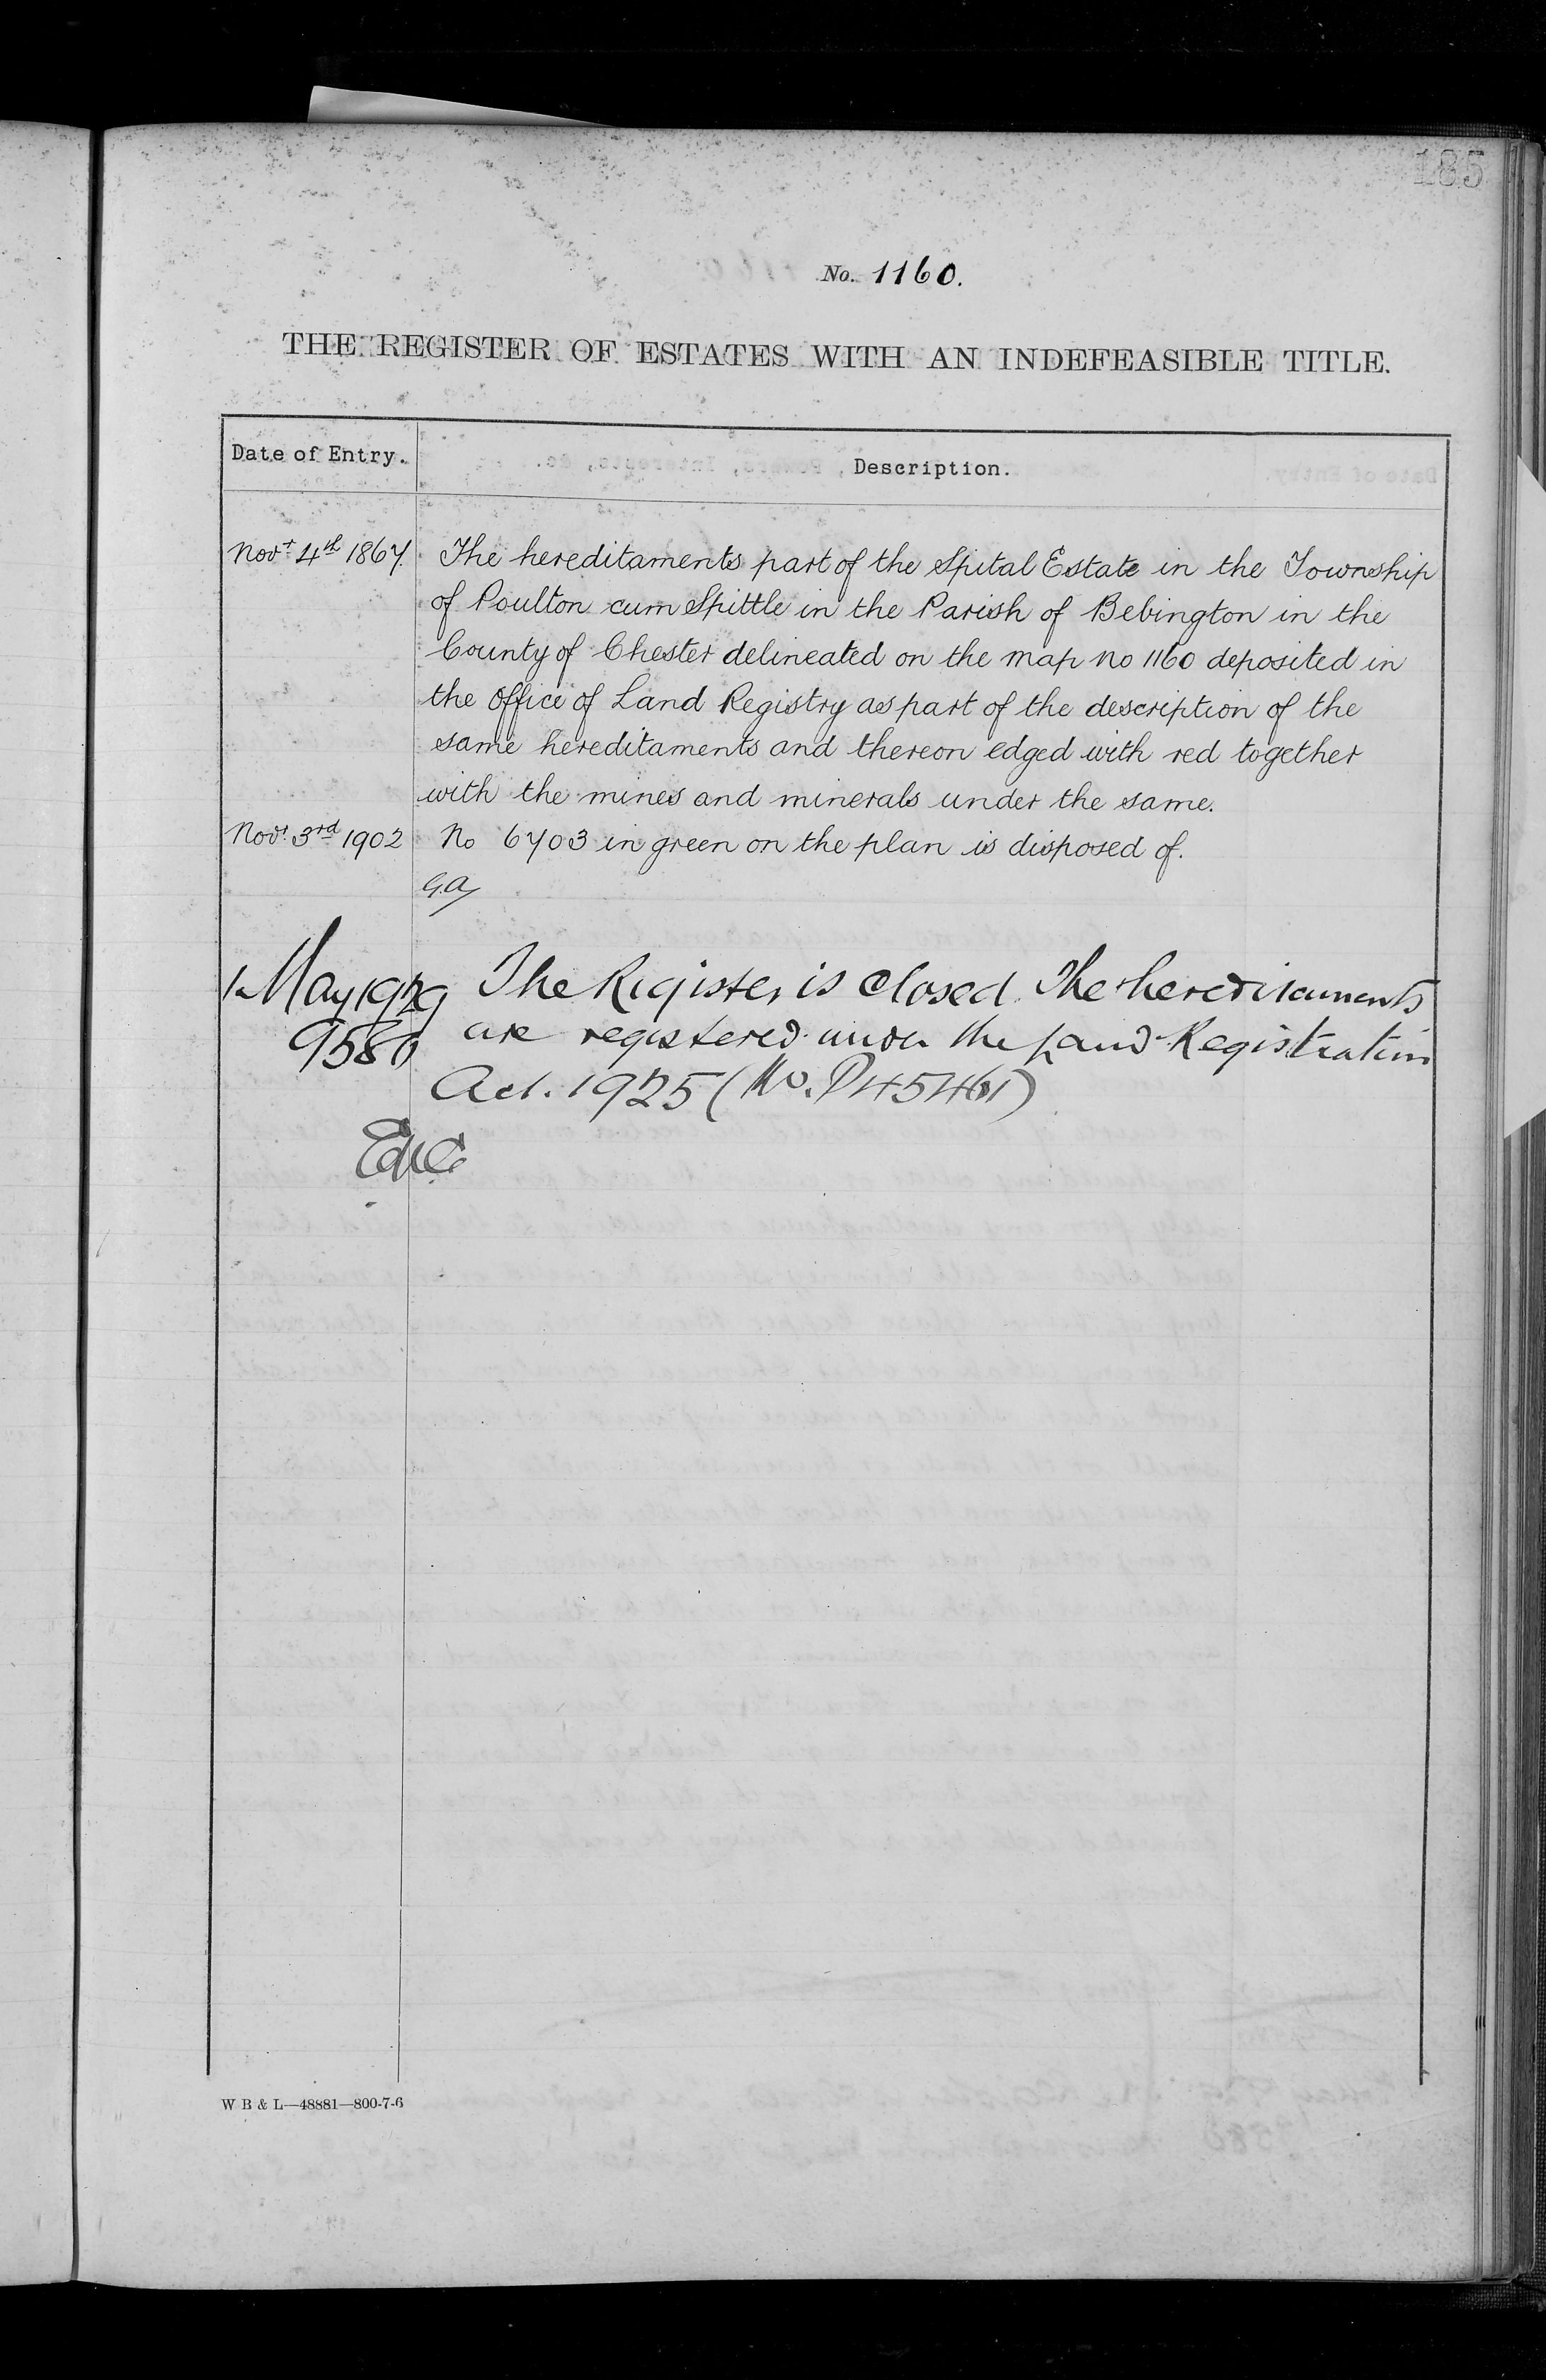 185
No. 1160.
THE REGISTER OF ESTATES WITH AN INDEFEASIBLE TITLE.
Date of Entry. Description.
Novr 4th 1867. The hereditaments part of the Spital Estate in the Township
of Poulton cum Spittle in the Parish of Bebington in the
County of Chester delineated on the map no 1160 deposited in
the office of Land Registry as part of the description of the
same hereditaments and thereon edged with red together
with the mines and minerals under the same.
Novr 3rd 1902 No 6703 in green on the plan is disposed of.
G.A.
1 May 1929 The Register is closed. The hereditaments
9580 are registered under the Land Registration
Act. 1925 (No. P45461)
W B & L—48881—800-7-6